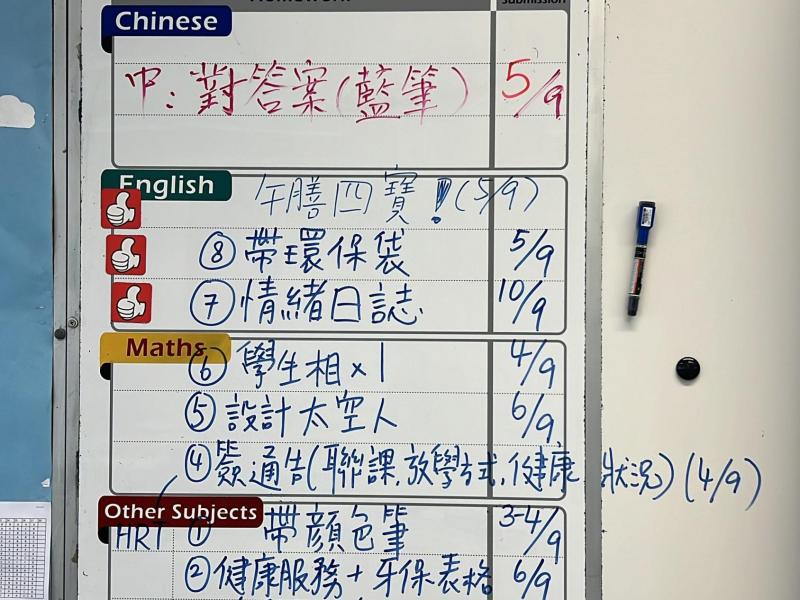 Homework Submission
Chinese
中：對答案(藍筆) 5/9
English
午膳四寶！(5/9)
⑧ 帶環保袋 5/9
⑦ 情緒日誌 10/9
Maths
⑥ 學生相×1 4/9
⑤ 設計太空人 6/9
④ 簽通告(聯課,放學方式,健康狀況) (4/9)
Other Subjects
HRT ① 帶顏色筆 3-4/9
② 健康服務+牙保表格 6/9